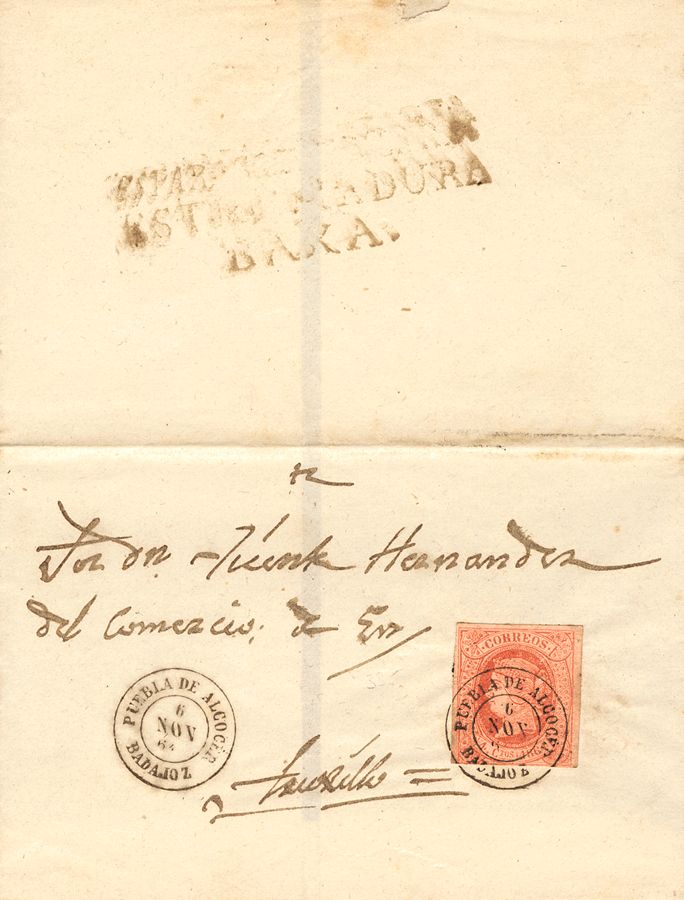 ESTREMADURA
BAXA.
Sor dn. Vicente Hernandez
del Comercio; de
CORREOS
PUEBLA DE ALCOCER
6
NOV
64
BADAJOZ
PUEBLA DE ALCOCER
6
NOV
BADAJOZ
Truxillo =